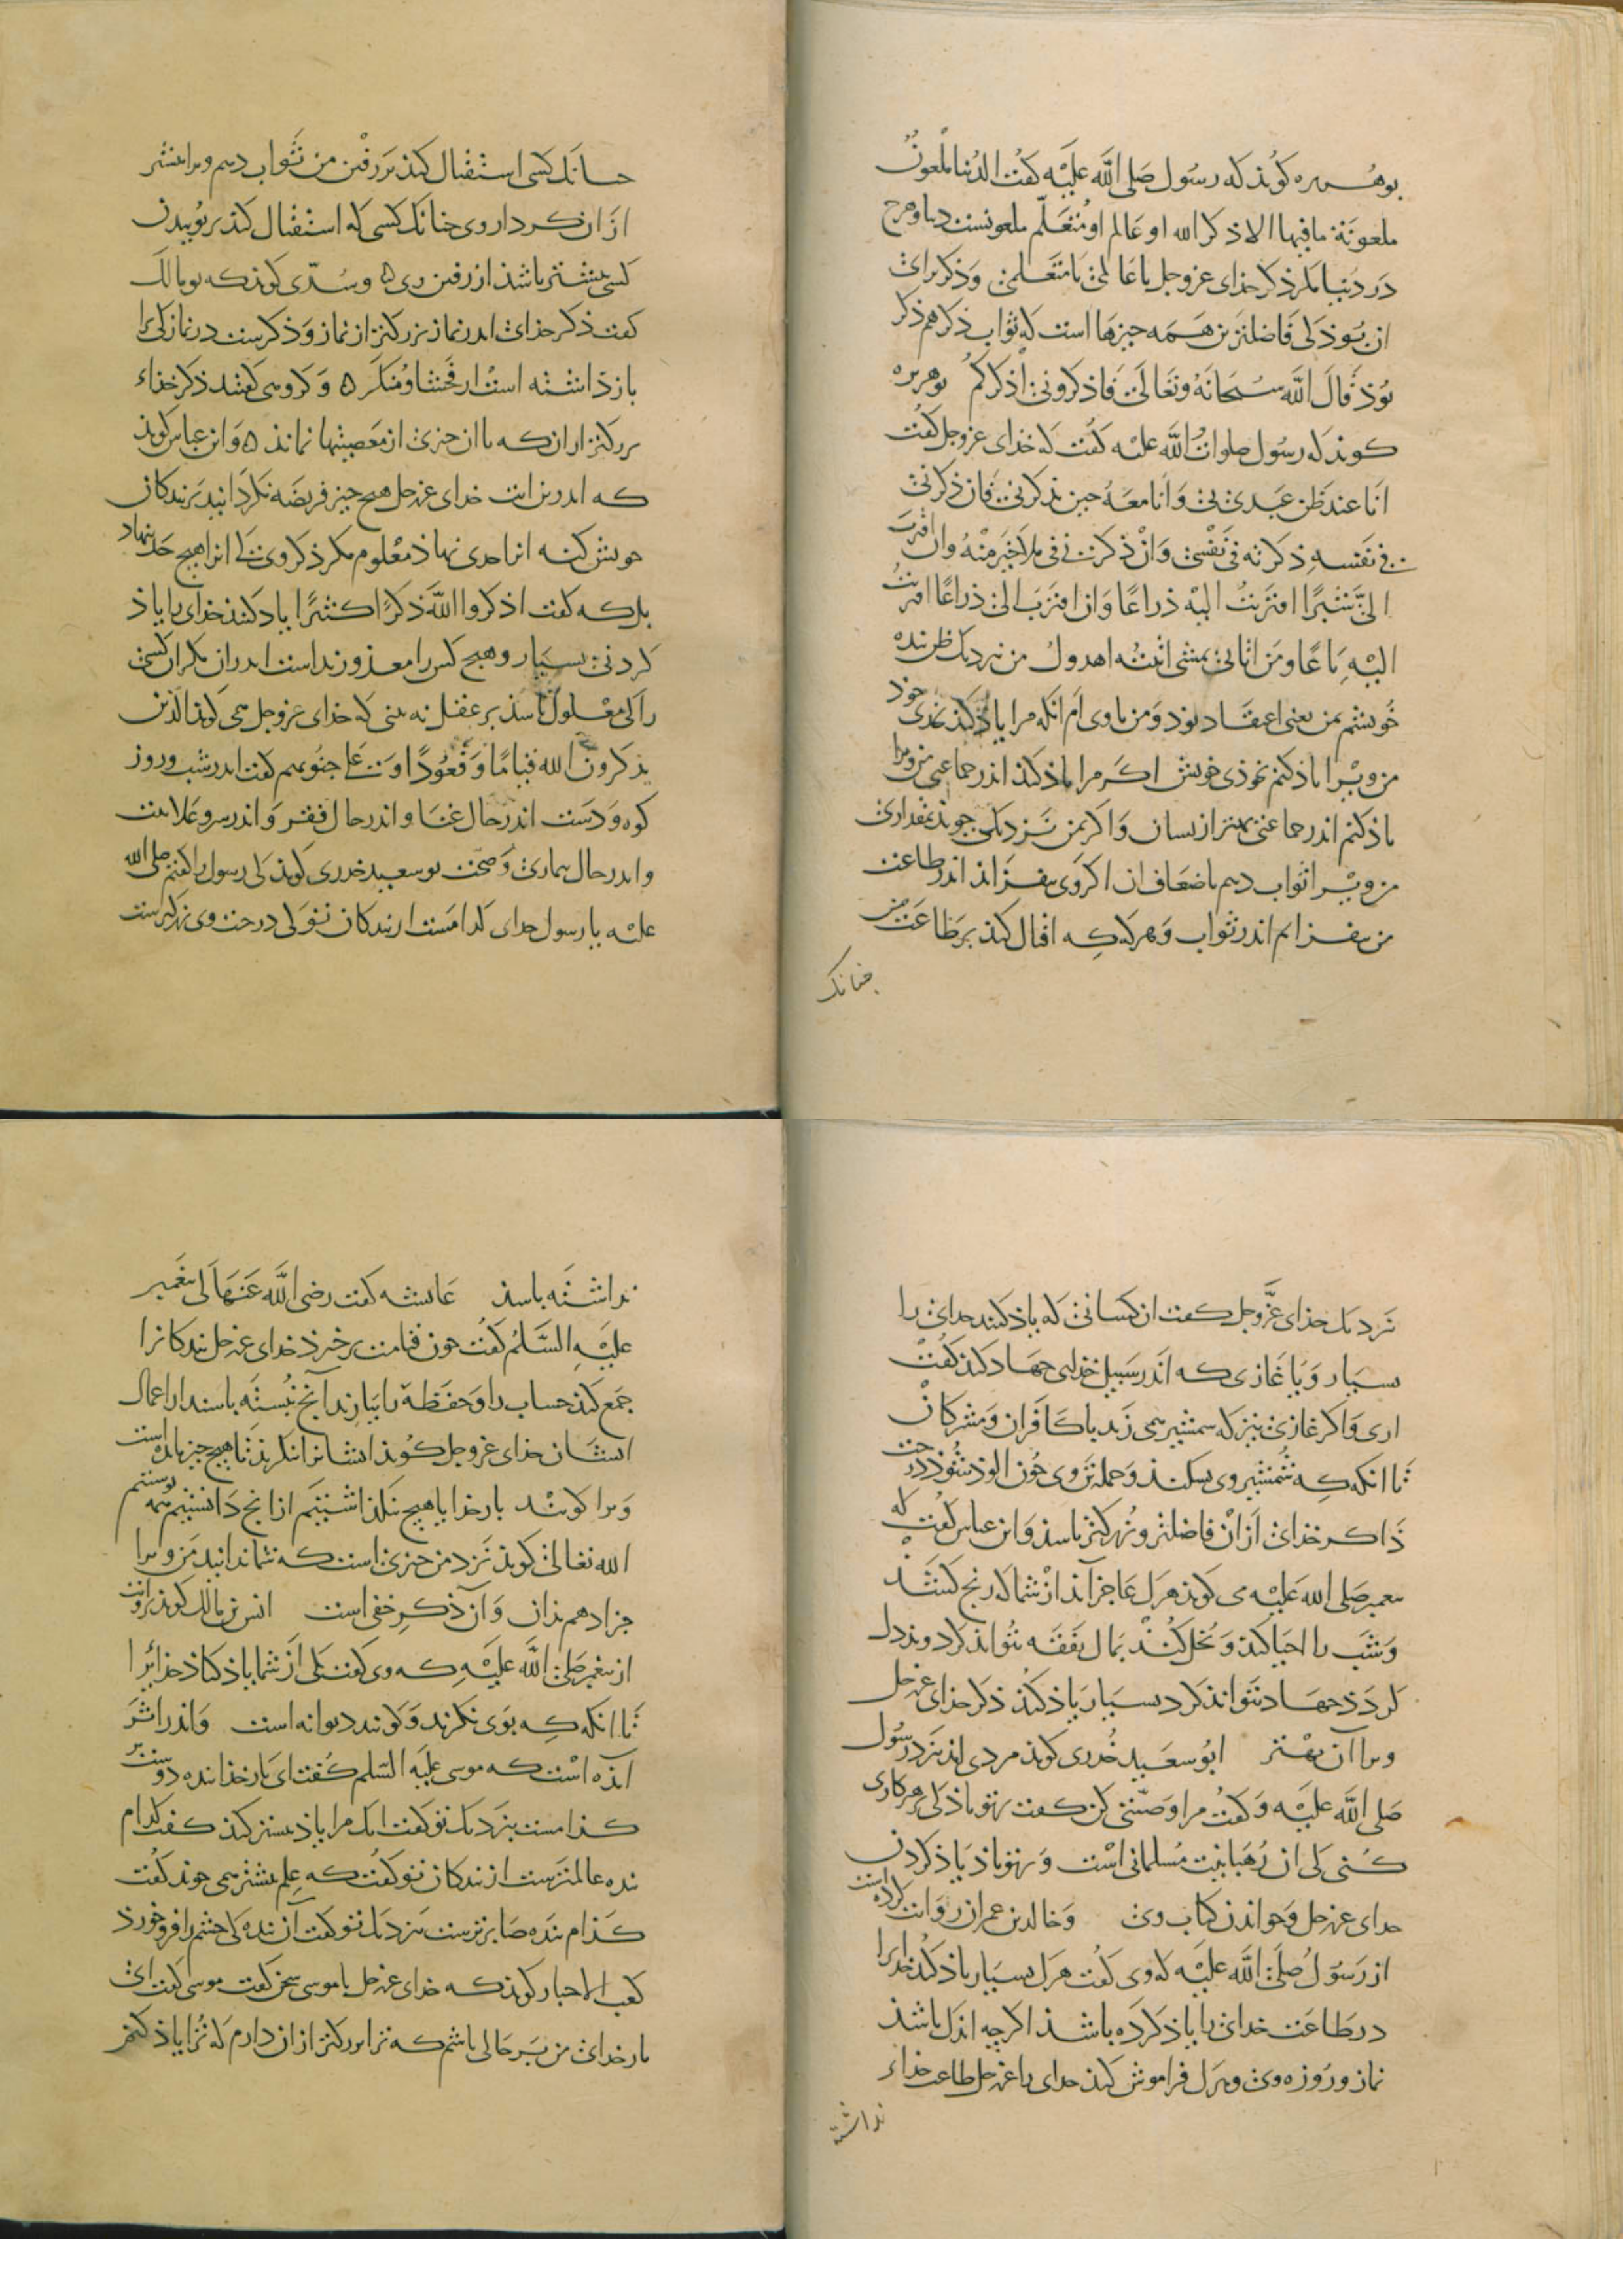 بوهریره کوند که رسول صلی الله علیه کفت الدنیا ملعونة
ملعونة ما فیها الا ذکر الله او عالم او متعلم ملعونست دنیا و هرج
در دنیا مکر ذکر خدای عزوجل یا عالمی یا متعلمی وذکر برای
ان بوذ کی فاضلترین همه جیزها است که ثواب ذکر هم ذکر
بوذ قال الله سبحانه وتعالی فاذکرونی اذکرکم بوهریره
کوند که رسول صلوات الله علیه کفت که خدای عزوجل کفت
انا عند ظن عبدی بی وانا معه حین یذکرنی فان ذکرنی
فی نفسه ذکرته فی نفسی وان ذکرنی فی ملا خیر منه وان اقترب
الی شبرا اقتربت الیه ذراعا وان اقترب الی ذراعا اقتربت
الیه باعا ومن اتانی یمشی اتیته اهدول من نزدیک ظن بنده
خویشم بمن یعنی اعتقاد بوذ ومن با وی ام انکه مرا یاذ کند بخوذی خود
من ویرا یاذ کنم بخوذی خویش اکر مرا یاذ کند اندر جماعتی من ویرا
یاذ کنم اندر جماعتی بهتر از یسان واکر بمن نزدیکی جوید بمقداری
من ویرا ثواب دهم باضعاف ان اکر وی بیفزاید اندر طاعت
من بیفزایم اندر ثواب وهرکه که اقبال کند بر طاعت من
جنانک
جنانک کسی استقبال کند بر رفتن من ثواب دهم ویرا بیشتر
از ان کردار وی جنانک کسی که استقبال کند بربوییدن
کسی بیشتر باشد از رفتن وی ه وسدی کوند که بومالک
کفت ذکر خدای اندر نماز بزرکتر از نماز وذکرست در نماز کی ترا
باز داشته است از فحشا ومنکر ه وکروهی کفتند ذکر خداء
بزرکتر از ان که با ان جیزی از معصیتها نماند ه وابن عباس کوید
که اندرین ایت خدای عزوجل هیج جیز فریضه نکردانید بر بندکان
خویش که نه انرا حدی نهاذ معلوم مکر ذکر وی کی انرا هیج حد ننهاد
بلکه کفت اذکروا الله ذکرا کثیرا یاد کنید خدای را یاذ
کردنی بسیار وهیج کس را معذور نداست اندران مکر ان کسی
را کی معلول باشد بر عقل نه بینی که خدای عزوجل همی کوید الذین
یذکرون الله قیاما وقعودا وعلی جنوبهم کفت اندر شب وروز
کوه ودست اندر حال غنا واندر حال فقر واندر سر وعلانیت
واندر حال بیماری وصحت بوسعید خدری کوید کی رسول را کفتم صلی الله
علیه یا رسول خدای کدامست از بندکان تو کی درجت وی بزرکترست
نزدیک خدای عزوجل کفت ان کسانی که یاذ کنند خدای را
بسیار ویا غازی که اندر سبیل خدای جهاد کند کفت
اری واکر غازی نیز که سمشیر همی زند با کافران ومشرکان
تا انکه که شمشیر وی بسکند وجمله تن وی خون الوذ شود درجت
ذاکر خدای از ان فاضلتر وبزرکتر باسد وابن عباس کفت که
بیغمبر صلی الله علیه می کوید هرک عاجز آید از شما که رنج کشد
وشب را احیا کند وبخل کند بمال بنفقه نتواند کرد وبددل
کردذ جهاد نتواند کرد بسیار یاذ کند ذکر خدای عزوجل
ویرا آن بهتر ابوسعید خدری کوید مردی امد نزد رسول
صلی الله علیه وکفت مرا وصیتی کن کفت بر تو باذ کی هر کاری
کنی کی ان رهبانیت مسلمانی است وبر تو باذ یاذ کردن
خدای عزوجل وخواندن کتاب وی وخالد بن عمران روایت کرده است
از رسول صلی الله علیه که وی کفت هرک بسیار یاذ کند خدایرا
در طاعت خدای را یاذ کرده باشذ اکرچه اندک باشذ
نماز وروزه وی وهرک فراموش کند خدای را عزوجل طاعت خداء
نداشته
نداشته باسد عایشه کفت رضی الله عنها کی بیغمبر
علیه السلم کفت جون قیامت برخیزد خدای عزوجل بندکانرا
جمع کند حساب را وحفظة را بیارند آنج نبسته باسند از اعمال
ایشان خدای عزوجل کوید ایشانرا بنکرید تا هیج جیز مانده است
ویرا کویند بار خدایا هیج نکذاشتیم از انج دانستیم همه نوستیم
الله تعالی کوید نزد من جیزی است که شما ندانید من ویرا
جزا دهم بذان وآن ذکر خفی است انس بن مالک کوید روایت
از بیغمبر صلی الله علیه که وی کفت کی از شما یاذ کناذ خدایرا
تا انکه که بوی نکرند وکویند دیوانه است واندر اثر
آمذه است که موسی علیه السلم کفت ای بار خدا بنده دوست تر
کذامست بنزدیک تو کفت انک مرا یاذ بیشتر کند کفت کدام
بنده عالمترست از بندکان تو کفت که علم بیشتر همی جوید کفت
کذام بنده صابرترست بنزدیک تو کفت آن بنده کی خشم را فرو خورذ
کعب الاحبار کوید که خدای عزوجل با موسی سخن کفت موسی کفت ای
بار خدای من بهر حالی باشم که ترا بزرکتر از ان دارم که ترا یاذ کنم